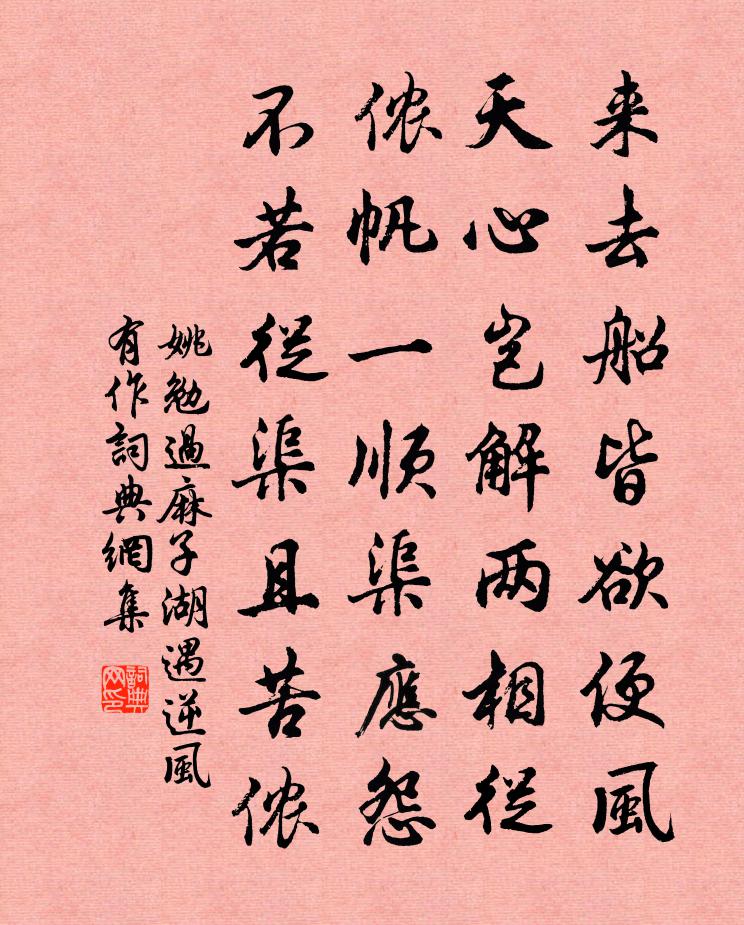 来去船皆欲便風
天心岂解两相從
侬帆一顺渠應怨
不若從渠且苦侬
姚勉過麻子湖遇逆風
有作詞典網集
詞典网印